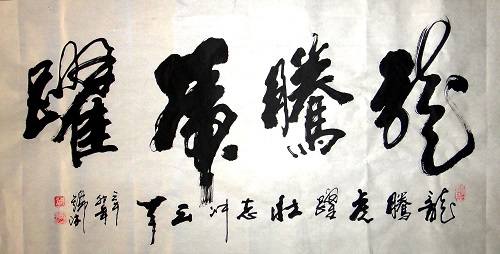 龍騰虎躍
龍騰虎躍壯志沖云天